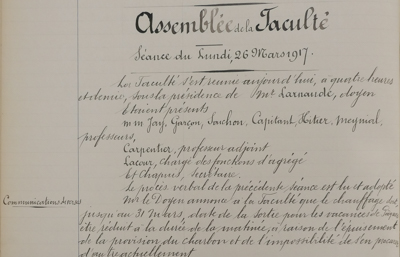 Assemblée de la Faculté
Séance du Lundi, 26 Mars 1917.
La Faculté s'est réunie aujourd'hui, à quatre heures
et demie, sous la présidence de Mr Larnaude, doyen
Etaient présents
MM Jay, Garçon, Saichon, Capitant, Hitier, Meynial,
professeurs,
Carpentier, professeur adjoint
Lacour, chargé des fonctions d'agrégé
Et Chapus, secrétaire.
Le procès verbal de la précédente séance est lu et adopté
Communications diverses
Mr le Doyen annonce à la Faculté que le chauffage
jusqu'au 31 Mars, date de la Sortie pour les vacances de
être réduit à la durée de la matinée, à raison de l'épuisement
de la provision du charbon et de l'impossibilité de s'en procurer
d'autre actuellement